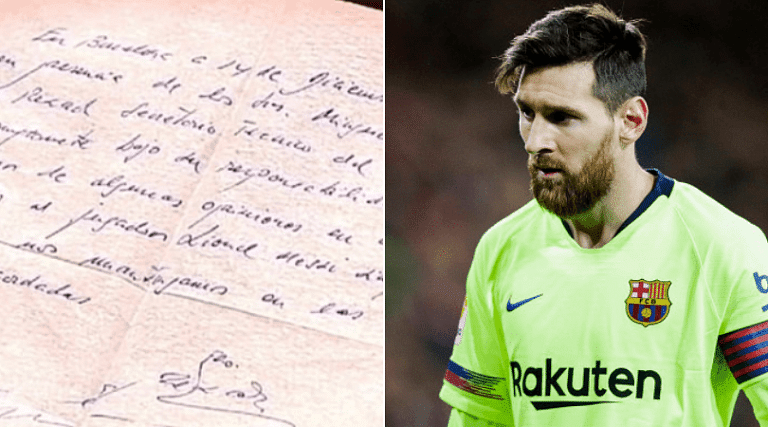 En Barcelona a 14 de Diciem
en presencia de los Srs. Mingue
Rexach Secretario Técnico del
bajo su responsabilida
de algunas opiniones en
al jugador Lionel Messi
nos mantengamos en las
FCB
Rakuten